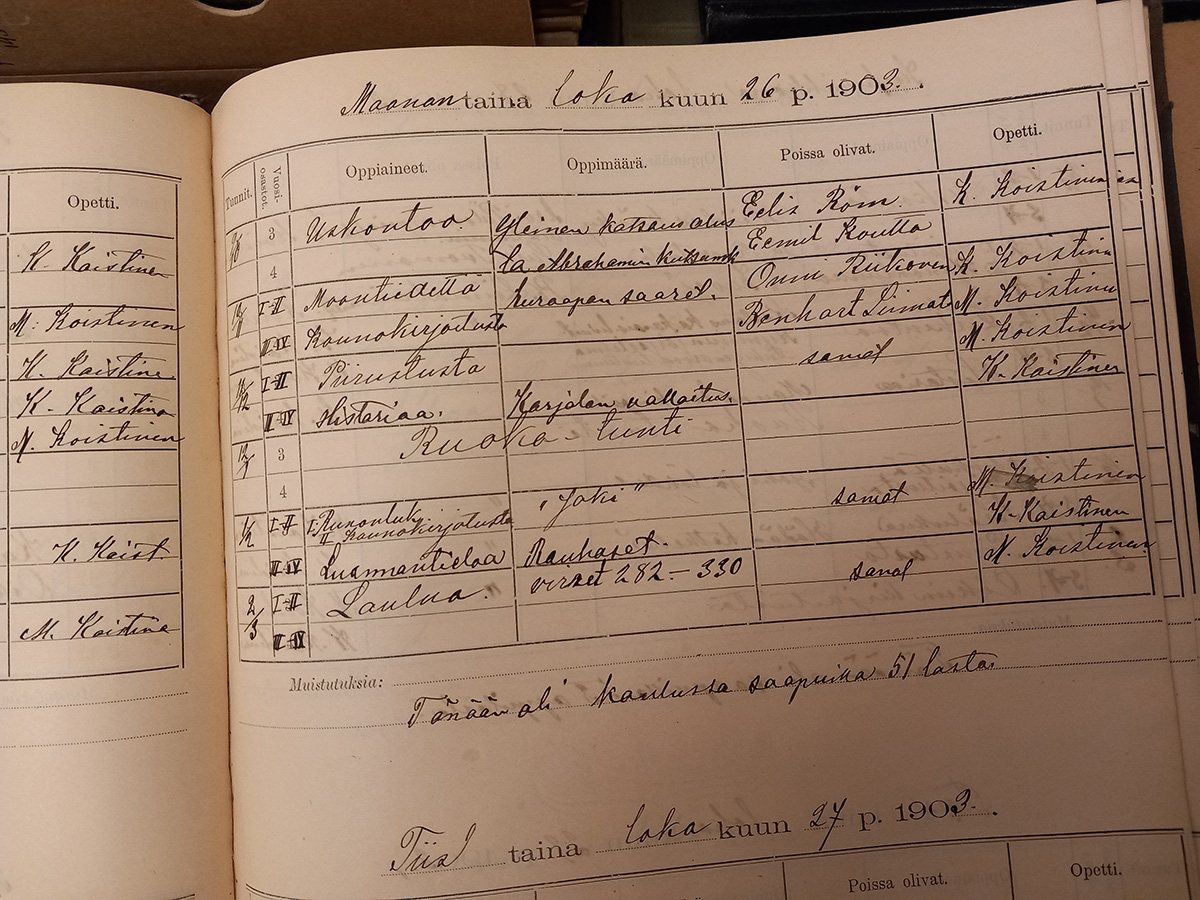 Opetti.
K. Koistinen
M. Koistinen
K. Koistinen
K. Koistinen
M. Koistinen
K. Koist
M. Koistine
Maanantaina loka kuun 26 p. 1903.
Tunnit. Vuosi-osastot. Oppiaineet. Oppimäärä. Poissa olivat. Opetti.
3 Uskontoa. Yleinen katsaus alus Eelis Röm K. Koistinen
4 ta Abrahamin kutsum Eemil Routto
I-II Maantiedettä Euroopan saaret. Onni Riikonen K. Koistinen
II-IV Kaunokirjoitusta Benhart Liimat M. Koistinen
11/12 I-II Piirustusta samat M. Koistinen
II-IV Historiaa. Karjalan valloitus. K. Koistinen
12/1 3 Ruoka-tunti
4
1/2 I-II I. Runonluk „Joki" samat M. Koistinen
II Kaunokirjotusta K. Koistinen
II-IV Luonnontietoa Rauhaset.
2/3 I-II Laulua. virret 282.-330 samat M. Koistinen
II-IV
Muistutuksia:
Tänään oli koulussa saapuilla 51 lasta.
Tiistaina loka kuun 27 p. 1903.
Poissa olivat. Opetti.